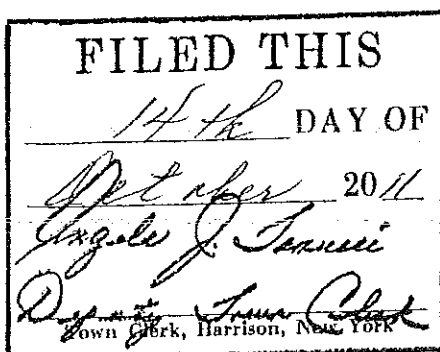 FILED THIS
14th DAY OF
October 2011
J.
Deputy Town Clerk
Town Clerk, Harrison, New York